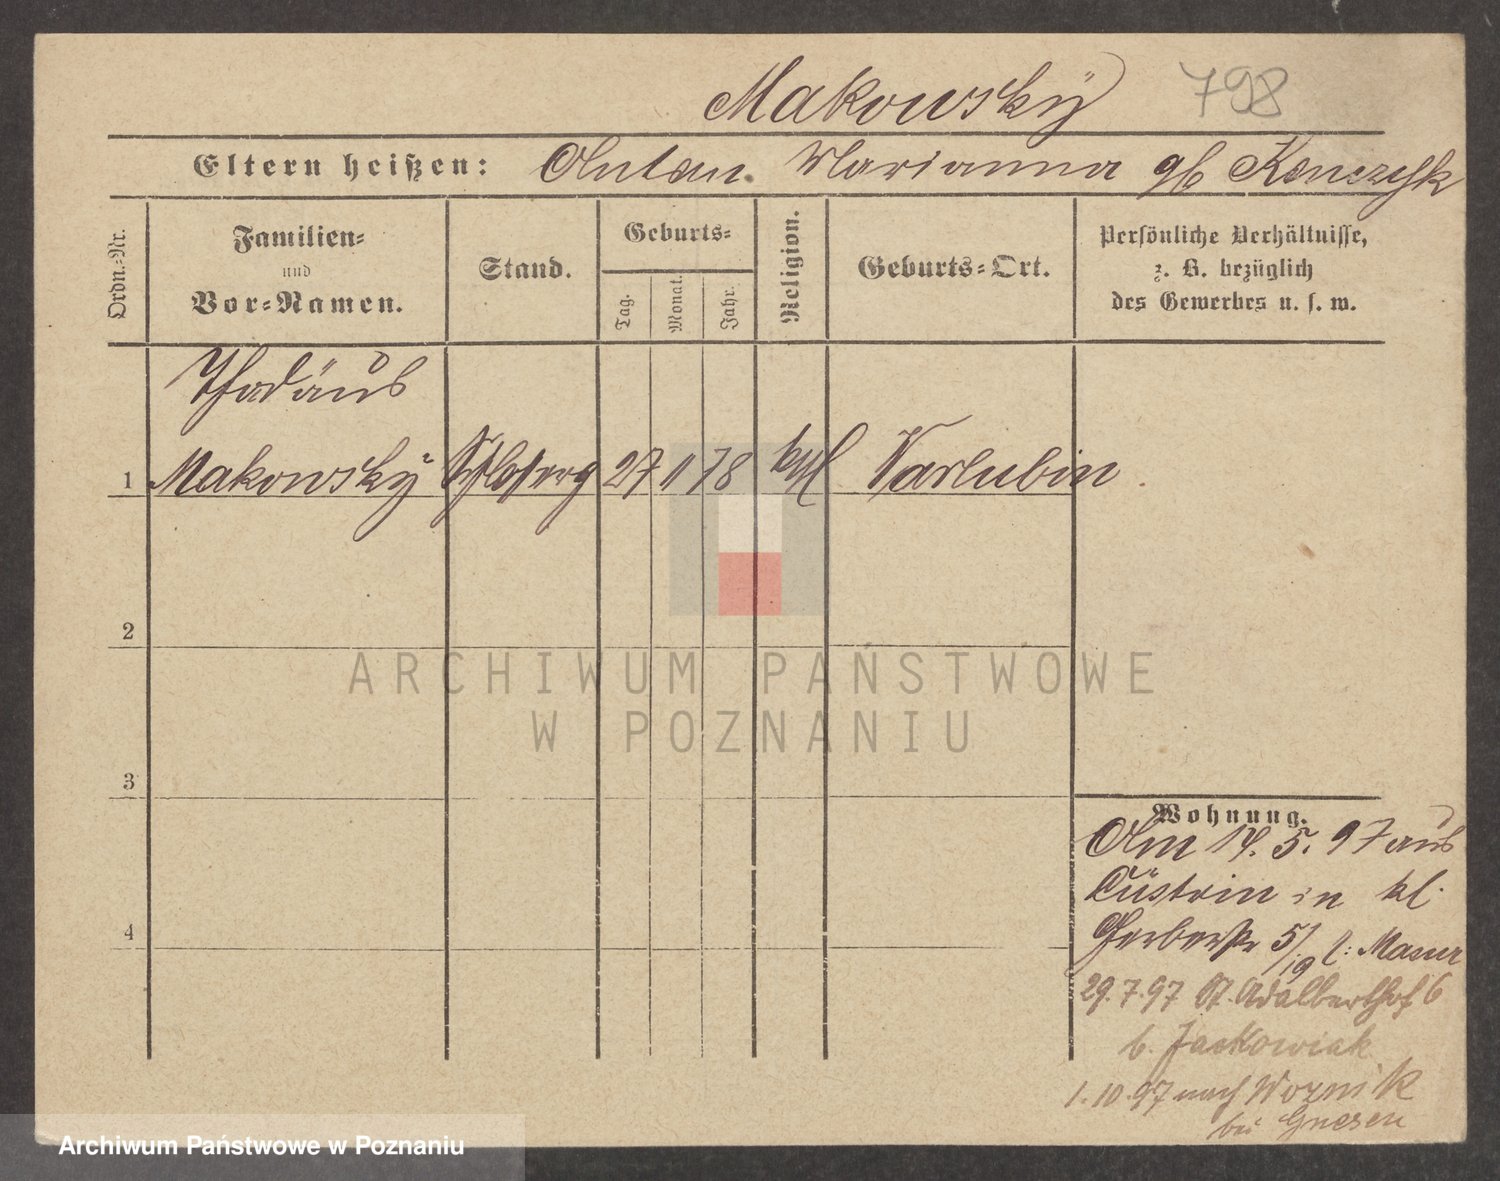 Makowský 798
Eltern heißen: Anton. Marianna gb Konczyk
Ordn.-Nr.
Familien-
und
Vor-Namen.
Stand.
Geburts-
Tag.
Monat.
Jahr.
Religion.
Geburts-Ort.
Persönliche Verhältnisse,
z. B. bezüglich
des Gewerbes u. s. w.
Thadäus
1 Makowský 27 11 78 ktl Varlubin
2
3
4
Wohnung.
Am 14. 5. 97 aus
Cüstrin in kl.
Gerberstr 5/19
29.7.97 St. Adalberthof 6
b. Jackowiak
1.10.97 nach Woznik
bei Gnesen
ARCHIWUM PAŃSTWOWE
W POZNANIU
Archiwum Państwowe w Poznaniu